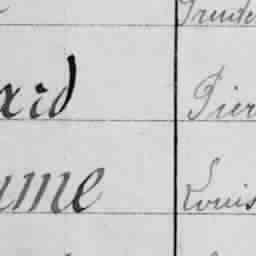 Prude
xid Pier
ume Louis